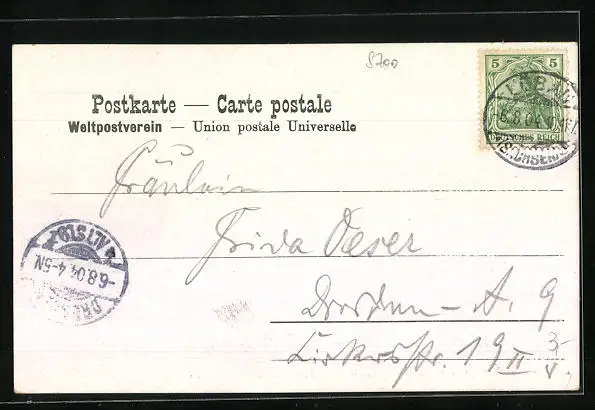 5700
Postkarte — Carte postale
Weltpostverein — Union postale Universelle
5 5
DEUTSCHES REICH
LÖBAU
6.8.04
(SACHSEN)
Fräulein
Frida Oeser
Dresden - A. 9
19 II
ALTST.
-6.8.04.4-5N.
DRESDEN